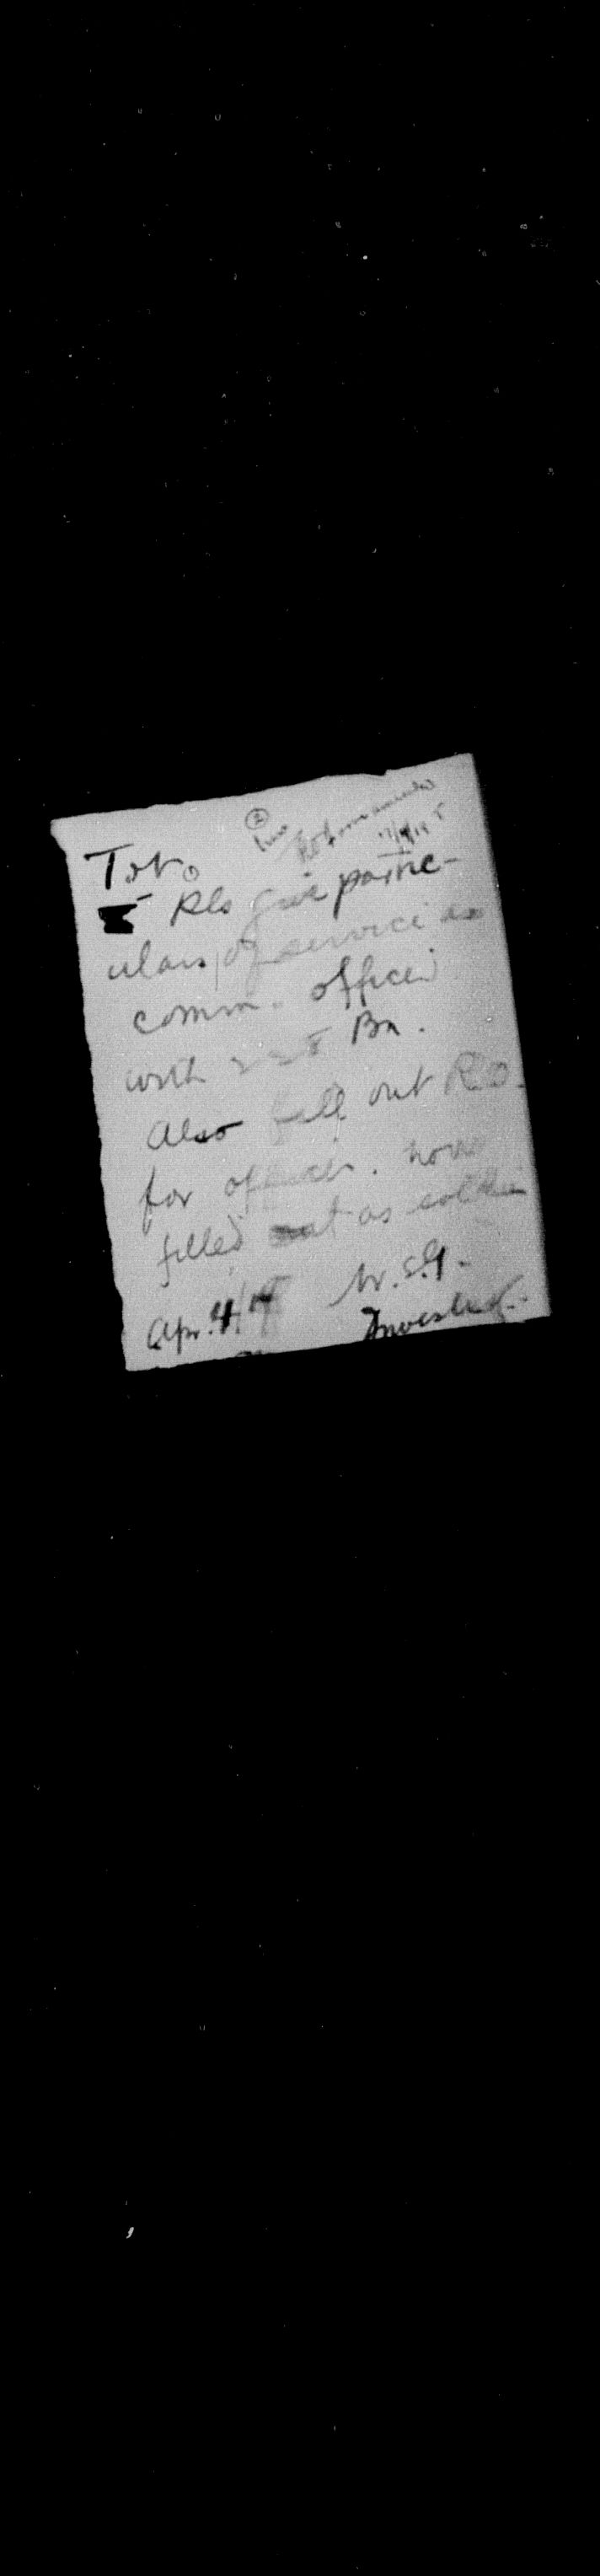 Pls give partic-
ulars of service as
comm. officer
with 228 Bn.
Also fill out R.O.
for officer. now
filled out as soldier
Apr. 4/19 W.S.G.
Investig.